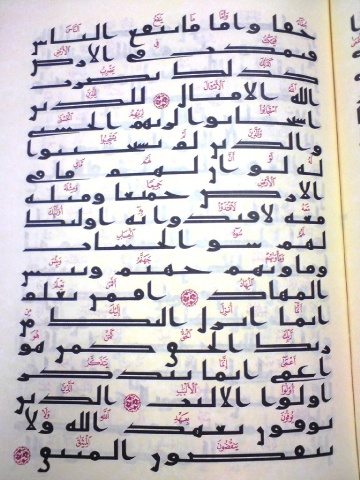 جفا واما ما ينفع الناس
فيمكث في الارض
كذلك يضرب
الله الامثال ۝ للذين
استجابوا لربهم الحسنى
والذين لم يستجيبوا
له لو ان لهم ما في
الارض جميعا ومثله
معه لافتدوا به اولئك
لهم سو الحساب
وماويهم جهنم وبئس
المهاد ۝ افمن يعلم
انما انزل اليك من
ربك الحق كمن هو
اعمى انما يتذكر
اولوا الالبب ۝ الذين
يوفون بعهد الله ولا
ينقضون الميثق ۝